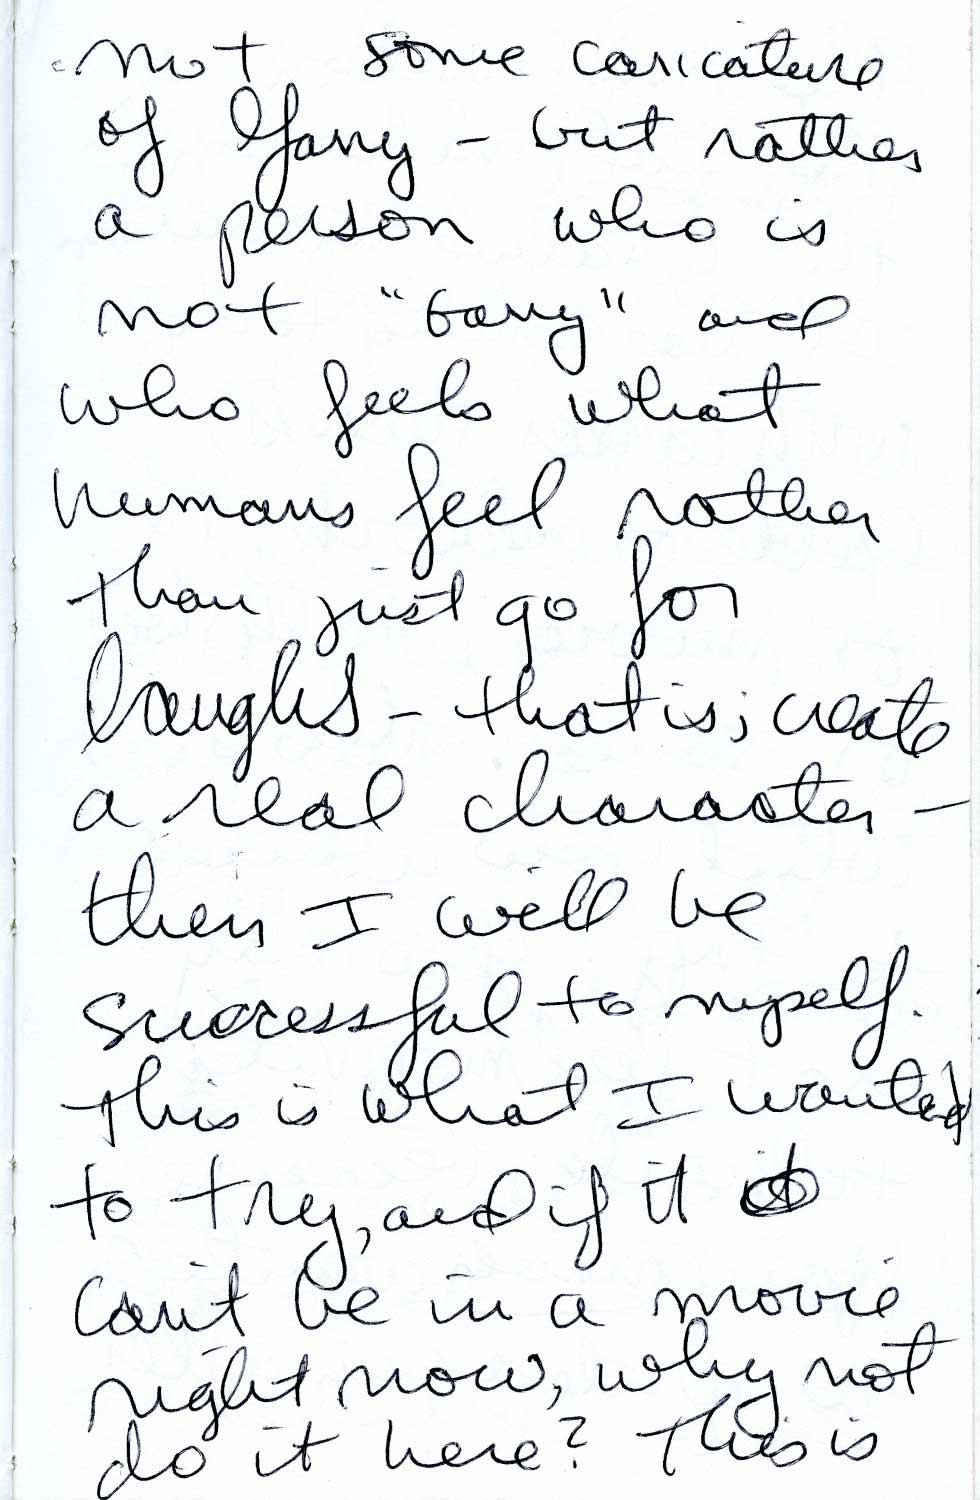 not some caricature
of Garry - but rather
a person who is
not "Garry" and
who feels what
humans feel rather
than just go for
laughs - that is; create
a real character -
then I will be
successful to myself.
This is what I wanted
to try, and if it
can't be in a movie
right now, why not
do it here? This is